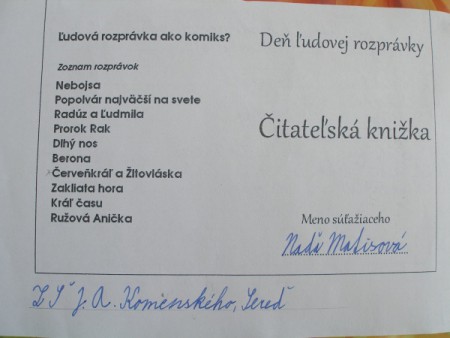 Ľudová rozprávka ako komiks?
Zoznam rozprávok
Nebojsa
Popolvár najväčší na svete
Radúz a Ľudmila
Prorok Rak
Dlhý nos
Berona
Červenkráľ a Žltovláska
Zakliata hora
Kráľ času
Ružová Anička
Deň ľudovej rozprávky
Čitateľská knižka
Meno súťažiaceho
Naďa Matisová
ZŠ J. A. Komenského, Sereď